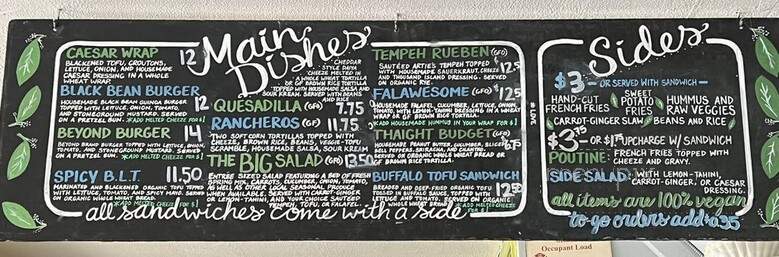 Main Dishes
CAESAR WRAP 12
BLACKENED TOFU, CROUTONS,
LETTUCE, ONION, AND HOUSEMADE
CAESAR DRESSING IN A WHOLE
WHEAT WRAP.
BLACK BEAN BURGER 12
HOUSEMADE BLACK BEAN QUINOA BURGER
TOPPED WITH LETTUCE, ONION, TOMATO,
AND STONEGROUND MUSTARD. SERVED
ON A PRETZEL BUN. *ADD MELTED CHEEZE FOR $1
BEYOND BURGER 14
BEYOND BRAND TOPPED WITH LETTUCE, ONION,
TOMATO, AND STONEGROUND MUSTARD. SERVED
ON A PRETZEL BUN. *ADD MELTED CHEEZE FOR $1
SPICY B.L.T. 11.50
MARINATED AND BLACKENED ORGANIC TOFU TOPPED
WITH LETTUCE, TOMATO, AND SPICY MAYO. SERVED
ON ORGANIC WHOLE WHEAT BREAD.
*ADD MELTED CHEEZE FOR $1
QUESADILLA (GFO) 7.75
CHEDDAR
STYLE DAIYA
CHEEZE MELTED IN
A WHOLE WHEAT TORTILLA
OR GF BROWN RICE TORTILLA
TOPPED WITH HOUSEMADE SALSA AND
SOUR KREAM. SERVED WITH BEANS
AND RICE
RANCHEROS (GF) 11.75
TWO SOFT CORN TORTILLAS TOPPED WITH
CHEEZE, BROWN RICE, BEANS, VEGGIE-TOFU
SCRAMBLE, HOUSEMADE SALSA, SOUR KREAM
THE BIG SALAD (GFO) 13.50
ENTREE SIZED SALAD FEATURING A BED OF FRESH
SPRING MIX, CARROTS, CUCUMBER, ONION, TOMATO,
AS WELL AS OTHER LOCAL SEASONAL PRODUCE
WHEN AVAILABLE. SERVED WITH CARROT-GINGER
OR LEMON-TAHINI, AND YOUR CHOICE SAUTEED
TEMPEH, TOFU, OR FALAFEL.
TEMPEH RUEBEN (GFO) $12.5
SAUTÉED ARTIE'S TEMPEH TOPPED
WITH HOUSEMADE SAUERKRAUT, CHEEZE
AND THOUSAND ISLAND DRESSING. SERVED
ON ORGANIC RYE.
FALAWESOME (GFO) $12.5
HOUSEMADE FALAFEL, CUCUMBER, LETTUCE, ONION,
TOMATO, WITH LEMON-TAHINI DRESSING IN A WHEAT
WRAP OR GF BROWN RICE TORTILLA.
*ADD HOUSEMADE HUMMUS IN YOUR WRAP FOR $1
THAIGHT BUDGET (GFO) 6.75
HOUSEMADE PEANUT BUTTER, CUCUMBER, SLICED
BELL PEPPERS, SRIRACHA, AND CILANTRO.
SERVED ON ORGANIC WHOLE WHEAT BREAD OR
BROWN RICE TORTILLA.
BUFFALO TOFU SANDWICH 12.50
BREADED AND DEEP-FRIED ORGANIC TOFU
TOSSED IN BUFFALO SAUCE, TOPPED WITH
LETTUCE AND TOMATO. SERVED ON ORGANIC
WHOLE WHEAT BREAD. *ADD MELTED CHEEZE FOR $1
all sandwiches come with a side
Sides
$3 - OR SERVED WITH SANDWICH
HAND-CUT
FRENCH FRIES
SWEET
POTATO
FRIES
HUMMUS AND
RAW VEGGIES
CARROT-GINGER SLAW BEANS AND RICE
$3.75 - OR $1.75 UPCHARGE W/ SANDWICH
POUTINE: FRENCH FRIES TOPPED WITH
CHEEZE AND GRAVY.
SIDE SALAD WITH LEMON-TAHINI,
CARROT-GINGER, OR CAESAR
DRESSING.
all items are 100% vegan
to-go orders add $0.35
Occupant Load